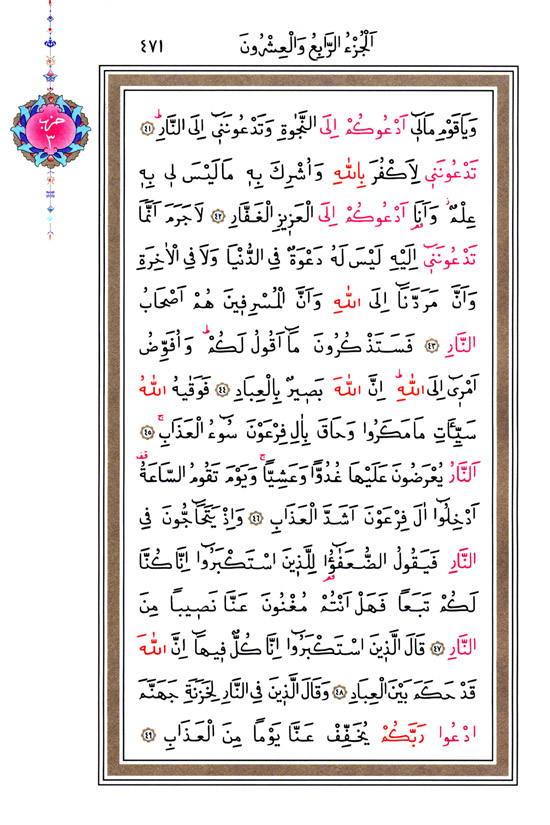 اَلْجُزْءُ الرَّابِعُ وَالْعِشْرُونَ
٤٧١
حزب
٣
وَيَاقَوْمِ مَالٖٓي اَدْعُوكُمْ اِلَى النَّجٰوةِ وَتَدْعُونَنٖٓي اِلَى النَّارِۜ ﴿٤١﴾
تَدْعُونَنٖي لِاَكْفُرَ بِاللّٰهِ وَاُشْرِكَ بِهٖ مَا لَيْسَ لٖي بِهٖ
عِلْمٌۘ وَاَنَا۬ اَدْعُوكُمْ اِلَى الْعَزٖيزِ الْغَفَّارِ ﴿٤٢﴾ لَا جَرَمَ اَنَّمَا
تَدْعُونَنٖٓي اِلَيْهِ لَيْسَ لَهُ دَعْوَةٌ فِي الدُّنْيَا وَلَا فِي الْاٰخِرَةِ
وَاَنَّ مَرَدَّنَٓا اِلَى اللّٰهِ وَاَنَّ الْمُسْرِفٖينَ هُمْ اَصْحَابُ
النَّارِ ﴿٤٣﴾ فَسَتَذْكُرُونَ مَٓا اَقُولُ لَكُمْۜ وَاُفَوِّضُ
اَمْرٖٓي اِلَى اللّٰهِۜ اِنَّ اللّٰهَ بَصٖيرٌ بِالْعِبَادِ ﴿٤٤﴾ فَوَقٰيهُ اللّٰهُ
سَيِّـَٔاتِ مَا مَكَرُوا وَحَاقَ بِاٰلِ فِرْعَوْنَ سُٓوءُ الْعَذَابِۚ ﴿٤٥﴾
اَلنَّارُ يُعْرَضُونَ عَلَيْهَا غُدُوًّا وَعَشِيًّاۚ وَيَوْمَ تَقُومُ السَّاعَةُ۠
اَدْخِلُٓوا اٰلَ فِرْعَوْنَ اَشَدَّ الْعَذَابِ ﴿٤٦﴾ وَاِذْ يَتَحَٓاجُّونَ فِي
النَّارِ فَيَقُولُ الضُّعَفٰٓؤُ۬ا لِلَّذٖينَ اسْتَكْبَرُٓوا اِنَّا كُنَّا
لَكُمْ تَبَعًا فَهَلْ اَنْتُمْ مُغْنُونَ عَنَّا نَصٖيبًا مِنَ
النَّارِ ﴿٤٧﴾ قَالَ الَّذٖينَ اسْتَكْبَرُٓوا اِنَّا كُلٌّ فٖيهَٓا اِنَّ اللّٰهَ
قَدْ حَكَمَ بَيْنَ الْعِبَادِ ﴿٤٨﴾ وَقَالَ الَّذٖينَ فِي النَّارِ لِخَزَنَةِ جَهَنَّمَ
ادْعُوا رَبَّكُمْ يُخَفِّفْ عَنَّا يَوْمًا مِنَ الْعَذَابِ ﴿٤٩﴾